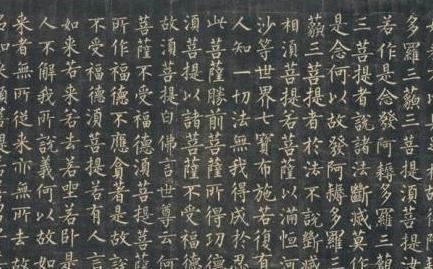 多羅三藐三菩提須菩提汝
若作是念發阿耨多羅三藐
三菩提者說諸法斷滅莫作
是念何以故發阿耨多羅三
藐三菩提者於法不說斷滅
相須菩提若菩薩以滿恒河
沙等世界七寶布施若復有
人知一切法無我得成於忍
此菩薩勝前菩薩所得功德
須菩提以諸菩薩不受福德
故須菩提白佛言世尊云何
菩薩不受福德須菩提菩薩
所作福德不應貪著是故說
不受福德須菩提若有人言
如來若來若去若坐若卧是
人不解我所說義何以故如
來者無所從來亦無所去故